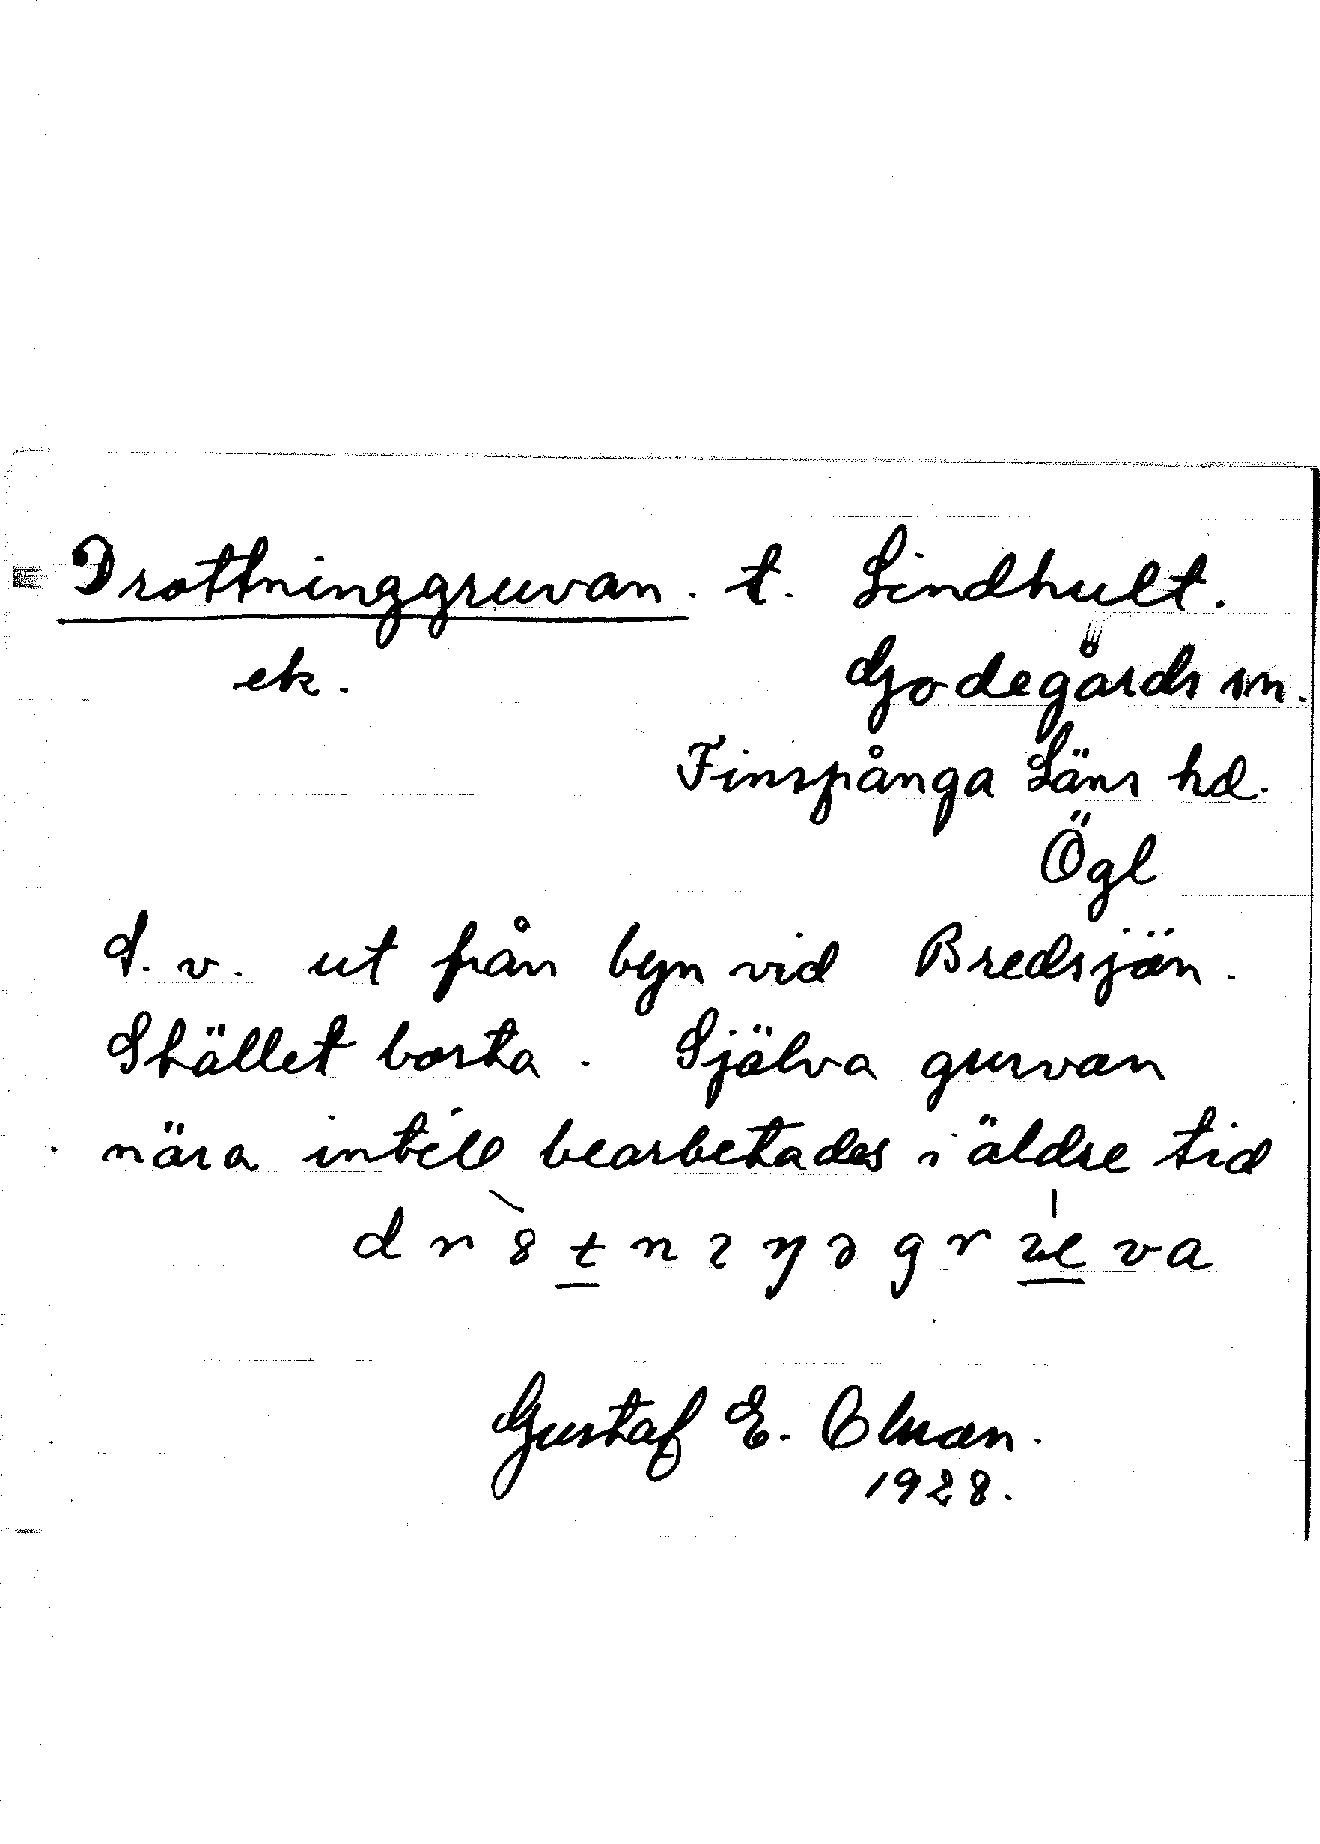 Drottninggruvan. t. Lindhult.
ek. Godegårds sn.
Finspånga Läns hd.
Ögl
S. v. ut från byn vid Bredsjön.
Stället borta. Själva gurvan
nära intill bearbetades i äldre tid
Gustaf E. Elman.
1928.